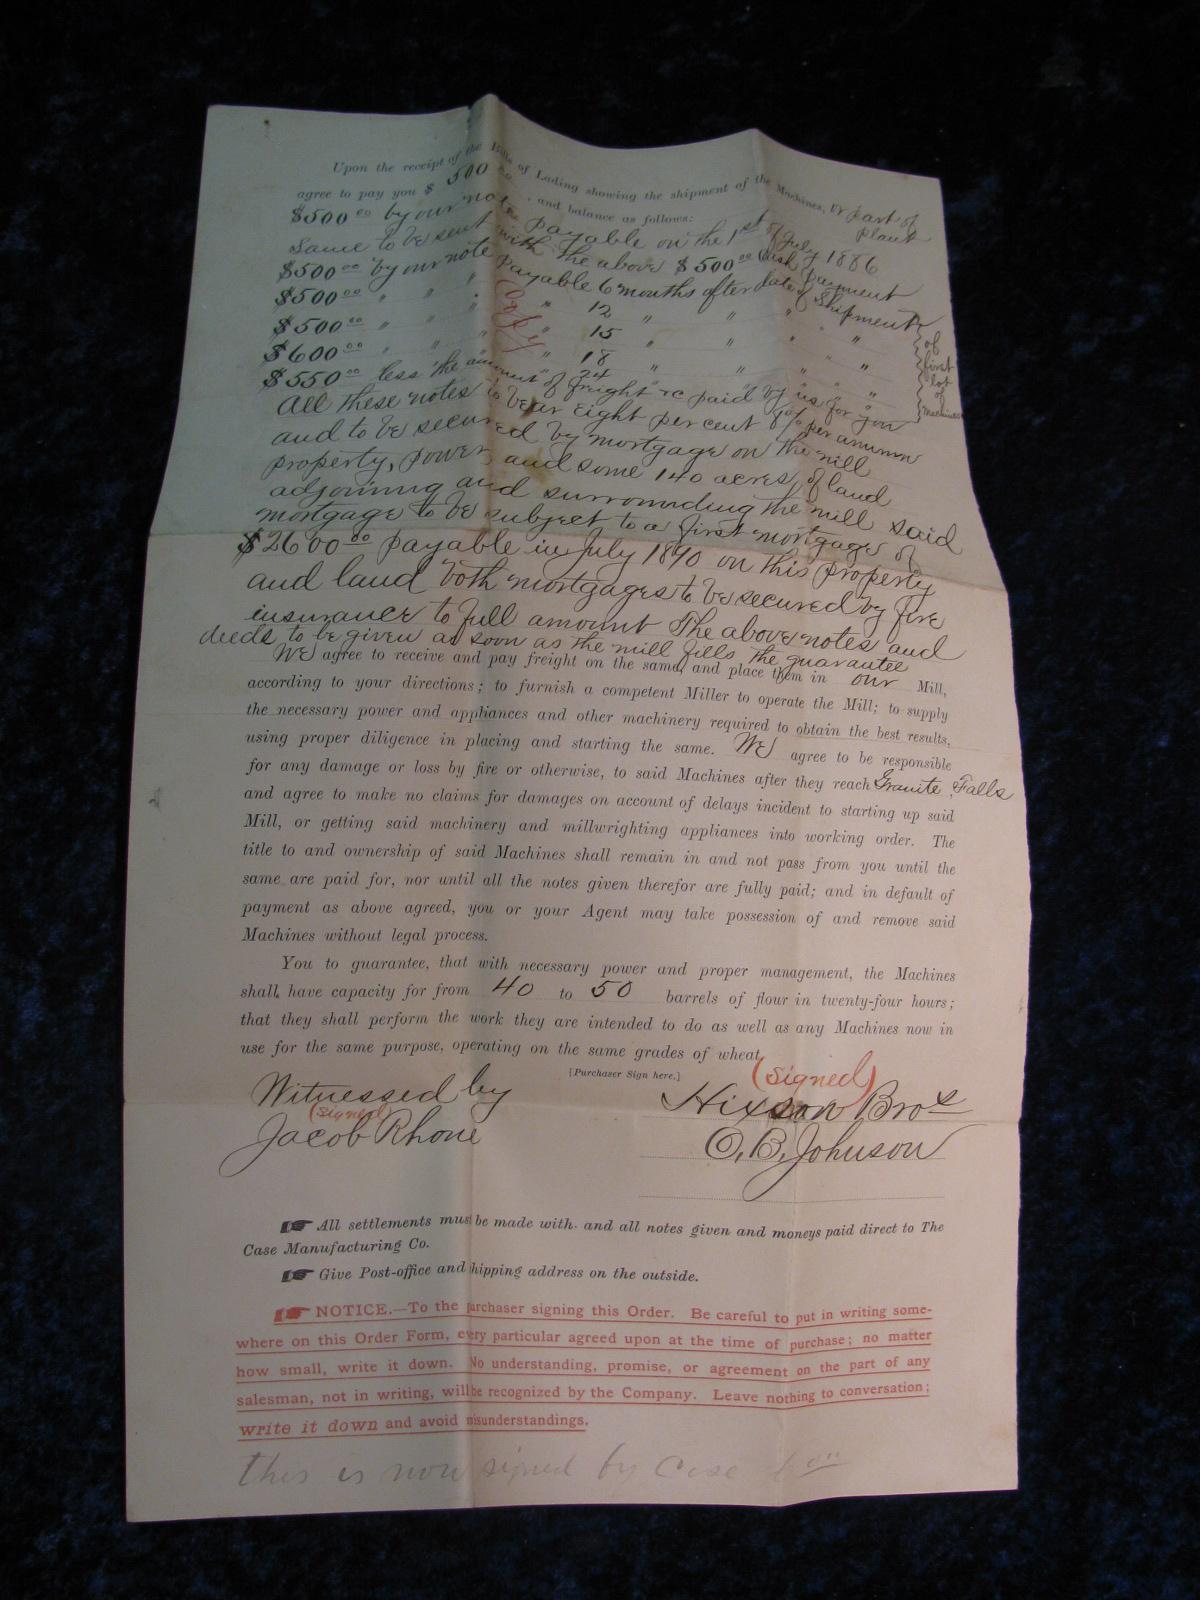 Upon the receipt of the Bills of Lading showing the shipment of the Machines, or part of plant
agree to pay you $ 500 00, and balance as follows:
$500 00 by our note payable on the 1st of July 1886
Same to be sent with the above $500 00 Cash payment
$500 00 by our note payable 6 months after date of Shipment
$500 00 " " " " 12 " " " "
$500 00 " " " " 15 " " " "
$600 00 " " " " 18 " " " "
$550 00 less the amount of freight &c paid by us for you
24 " " " "
of first lot of machines
Copy
All these notes to bear eight per cent 8% per annum
and to be secured by mortgage on the mill
property, power, and some 140 acres of land
adjoining and surrounding the mill said
mortgage to be subject to a first mortgage of
$2600 00 payable in July 1890 on this property
and land both mortgages to be secured by fire
insurance to full amount The above notes and
deeds to be given as soon as the mill fills the guarantee
We agree to receive and pay freight on the same, and place them in our Mill,
according to your directions; to furnish a competent Miller to operate the Mill; to supply
the necessary power and appliances and other machinery required to obtain the best results,
using proper diligence in placing and starting the same. We agree to be responsible
for any damage or loss by fire or otherwise, to said Machines after they reach Granite Falls
and agree to make no claims for damages on account of delays incident to starting up said
Mill, or getting said machinery and millwrighting appliances into working order. The
title to and ownership of said Machines shall remain in and not pass from you until the
same are paid for, nor until all the notes given therefor are fully paid; and in default of
payment as above agreed, you or your Agent may take possession of and remove said
Machines without legal process.
You to guarantee, that with necessary power and proper management, the Machines
shall have capacity for from 40 to 50 barrels of flour in twenty-four hours;
that they shall perform the work they are intended to do as well as any Machines now in
use for the same purpose, operating on the same grades of wheat.
[Purchaser Sign here.]
(Signed)
Witnessed by
Hixson Bros
(signed)
Jacob Rhone
O. B. Johnson
All settlements must be made with and all notes given and moneys paid direct to The
Case Manufacturing Co.
Give Post-office and shipping address on the outside.
NOTICE.—To the purchaser signing this Order. Be careful to put in writing some-
where on this Order Form, every particular agreed upon at the time of purchase; no matter
how small, write it down. No understanding, promise, or agreement on the part of any
salesman, not in writing, will be recognized by the Company. Leave nothing to conversation;
write it down and avoid misunderstandings.
this is now signed by Case